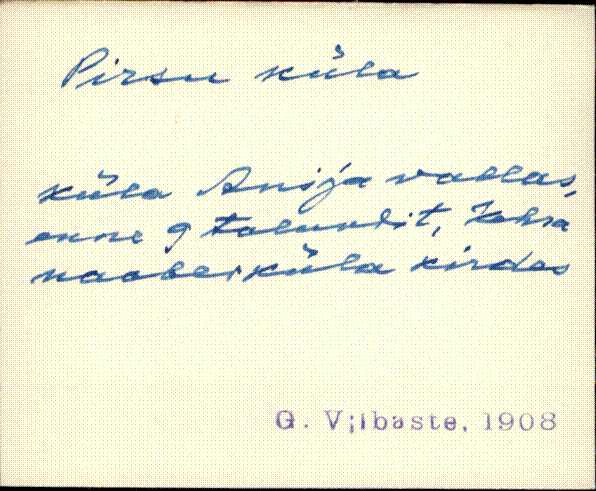 Pirsu küla
küla Anija vallas,
enne 9 talundit, Kehra
naaberküla kirdes
G. Vilbaste, 1908